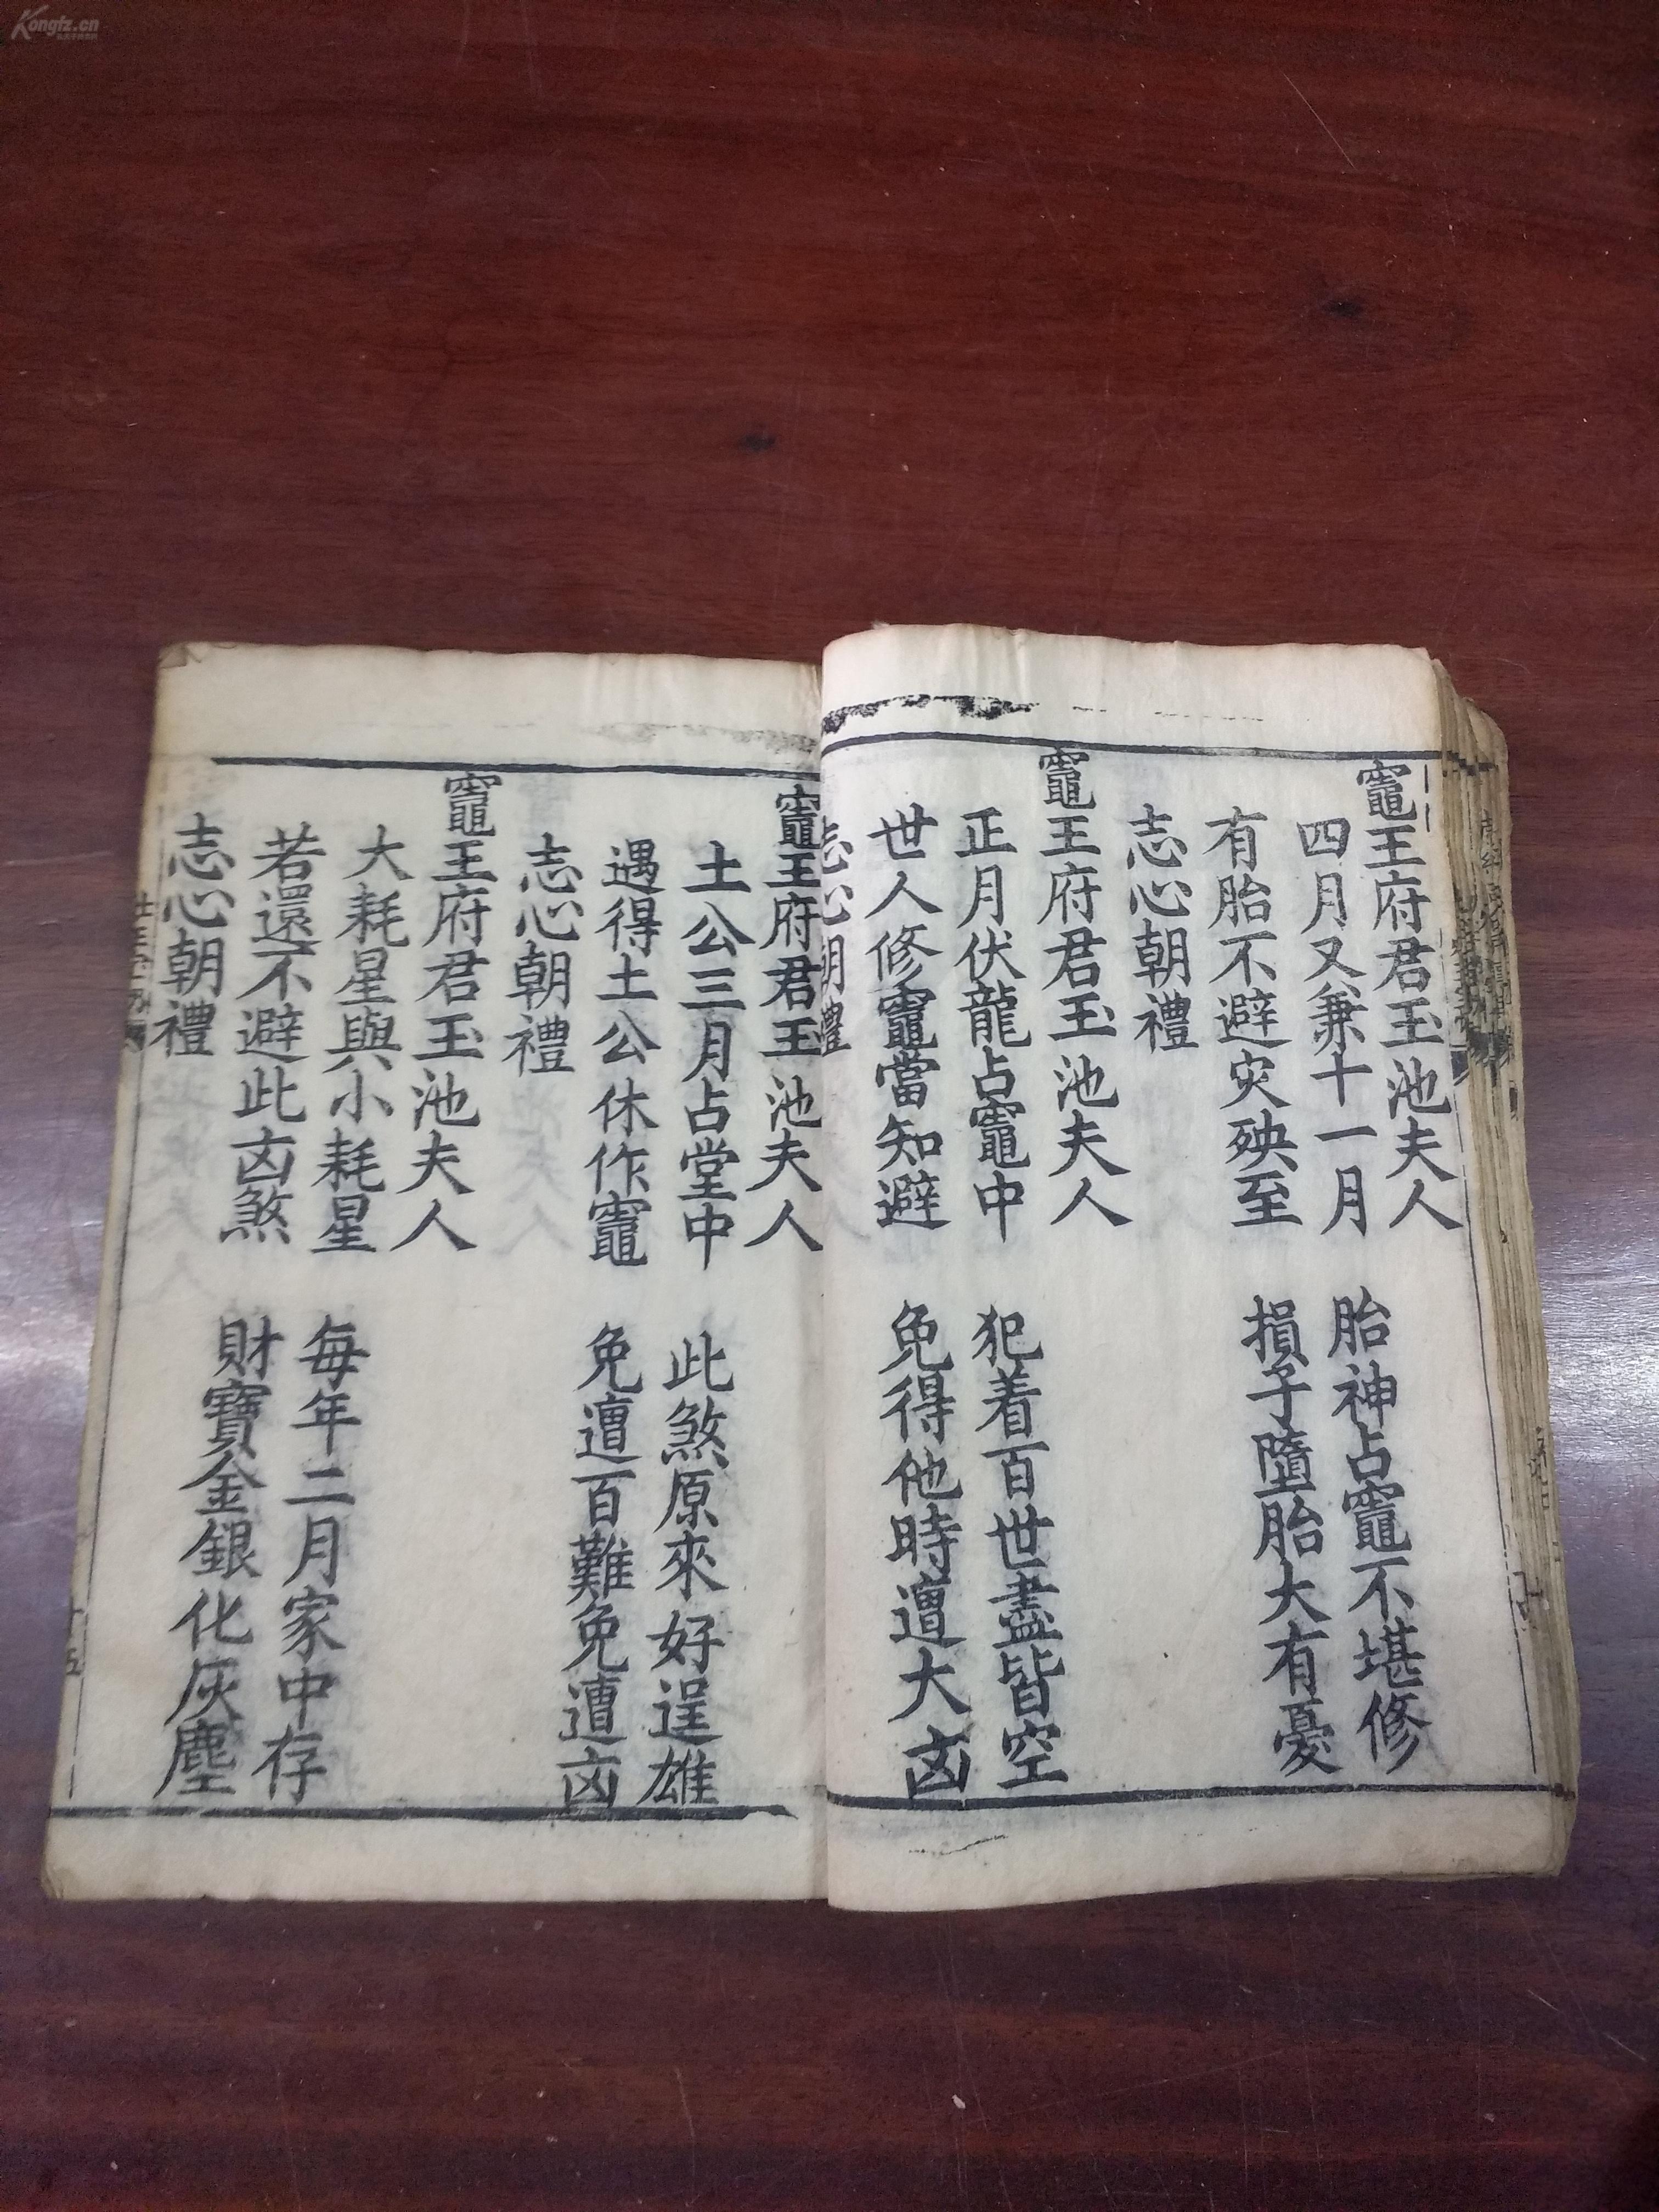 竈王府君玉池夫人
四月又兼十一月　胎神占竈不堪修
有胎不避災殃至　損子墮胎大有憂
志心朝禮
竈王府君玉池夫人
正月伏龍占竈中　犯着百世盡皆空
世人修竈當知避　免得他時遭大凶
志心朝禮
竈王府君玉池夫人
土公三月占堂中　此煞原來好逞雄
遇得土公休作竈　免遭百難免遭凶
志心朝禮
竈王府君玉池夫人
大耗星與小耗星　每年二月家中存
若還不避此凶煞　財寶金銀化灰塵
志心朝禮
十五
Kongfz.cn